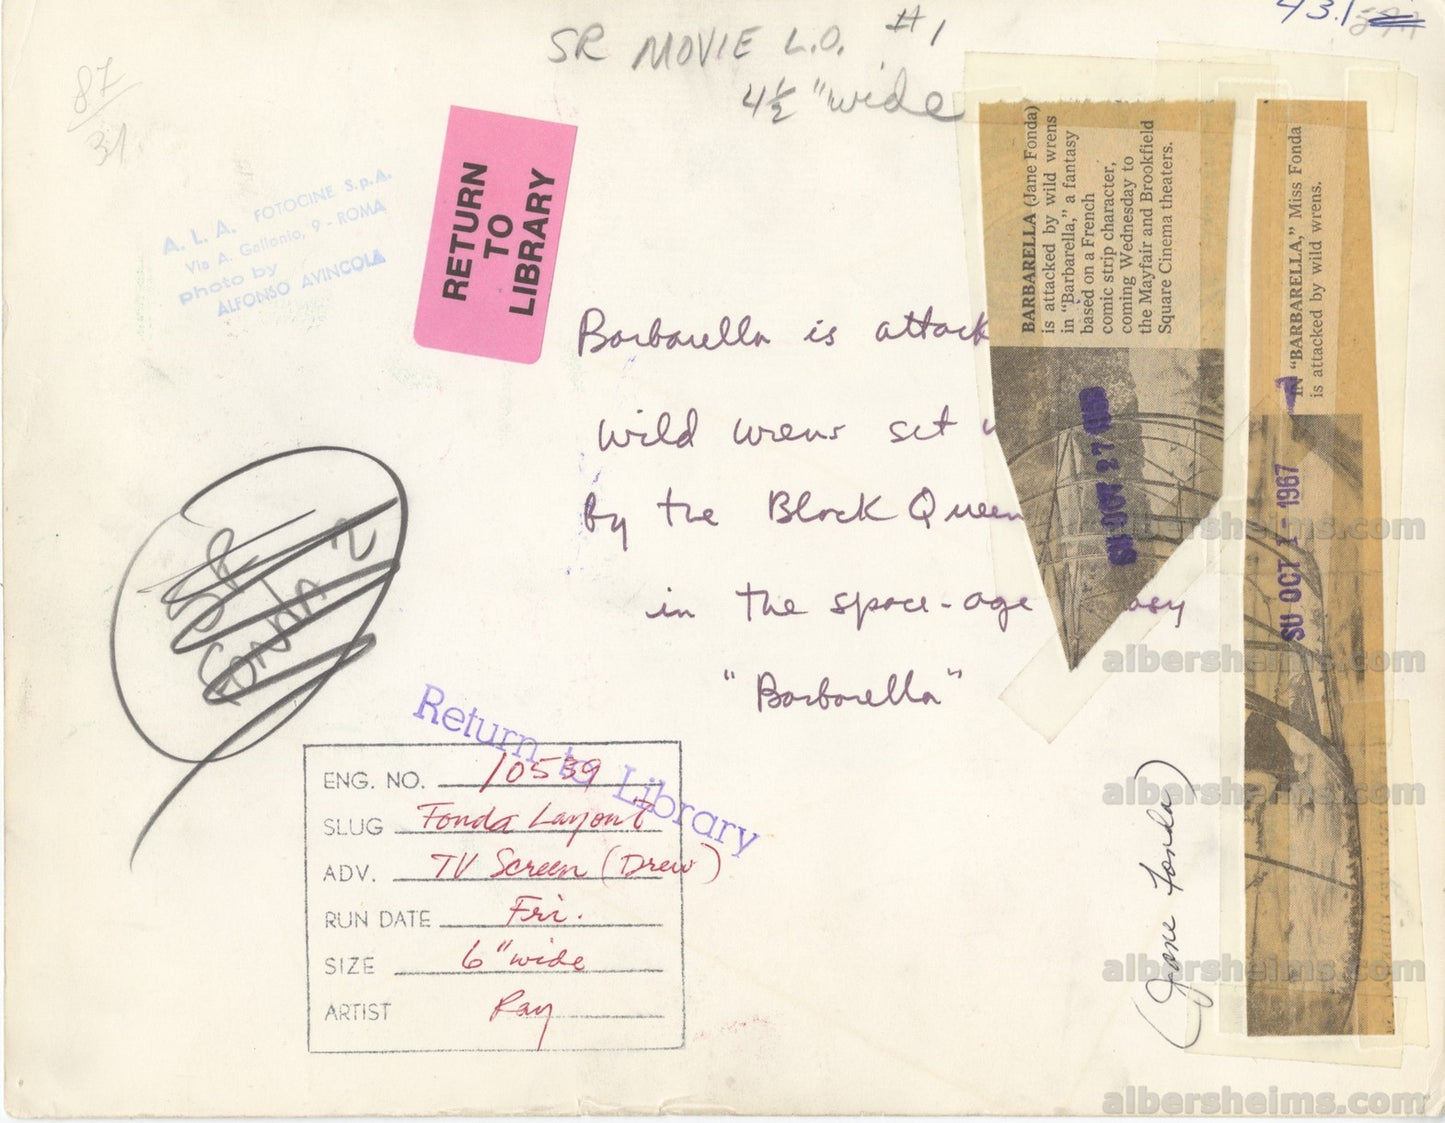 43.1
SR MOVIE L.O. #1
4½ "wide
87
31
A. L. A. FOTOCINE S.p.A.
Via A. Gallonio, 9 - ROMA
photo by
ALFONSO AVINCOLA
RETURN
TO
LIBRARY
Barbarella is attack
wild wrens set
by the Black Queen
in the space-age asy
"Barbarella"
BARBARELLA (Jane Fonda)
is attacked by wild wrens
in "Barbarella," a fantasy
based on a French
comic strip character,
coming Wednesday to
the Mayfair and Brookfield
Square Cinema theaters.
SU OCT 27 1968
IN "BARBARELLA," Miss Fonda
is attacked by wild wrens.
SU OCT 1 - 1967
2
Return to Library
ENG. NO. 10539
SLUG Fonda Layout
ADV. TV Screen (Drew)
RUN DATE Fri.
SIZE 6" wide
ARTIST Ray
(Jane Fonda)
albersheims.com
albersheims.com
albersheims.com
albersheims.com
albersheims.com